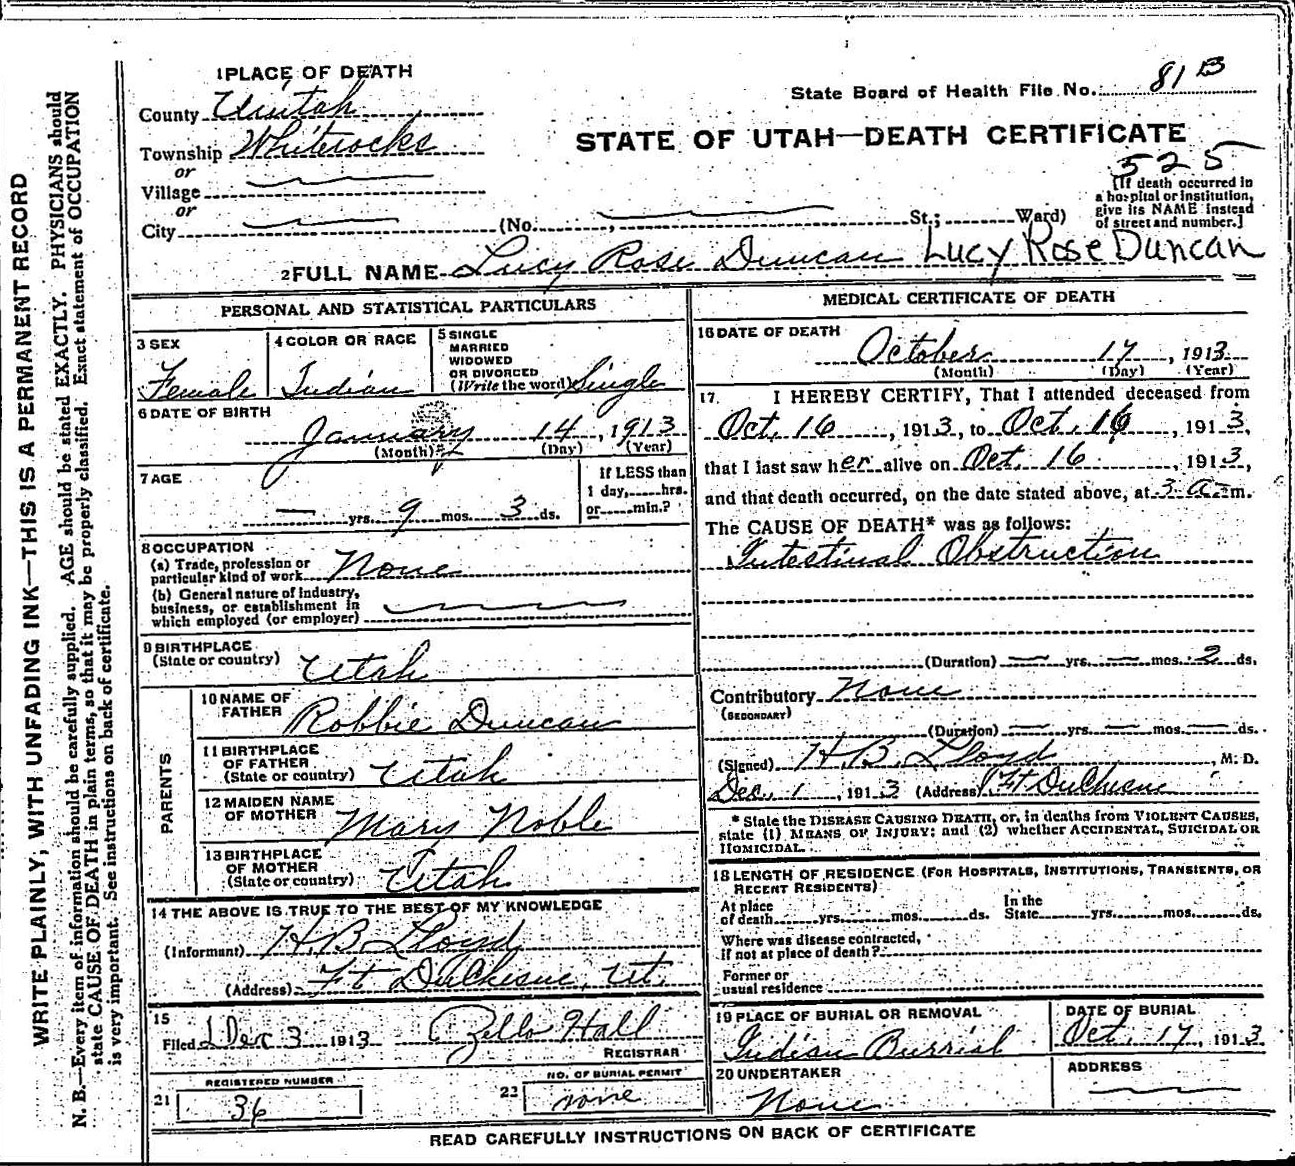 1 PLACE OF DEATH
County Uintah
Township Whiterocks
or
Village
or
City (No. , St.; Ward)
State Board of Health File No. 81 B
STATE OF UTAH—DEATH CERTIFICATE
525
[If death occurred in
a hospital or institution,
give its NAME instead
of street and number.]
2 FULL NAME Lucy Rose Duncan Lucy Rose Duncan
PERSONAL AND STATISTICAL PARTICULARS
3 SEX
Female
4 COLOR OR RACE
Indian
5 SINGLE
MARRIED
WIDOWED
OR DIVORCED
(Write the word) Single
6 DATE OF BIRTH
January 14, 1913
(Month) (Day) (Year)
7 AGE
— yrs. 9 mos. 3 ds.
If LESS than
1 day, hrs.
or min.?
8 OCCUPATION
(a) Trade, profession or
particular kind of work None
(b) General nature of industry,
business, or establishment in
which employed (or employer)
9 BIRTHPLACE
(State or country) Utah
PARENTS
10 NAME OF
FATHER Robbie Duncan
11 BIRTHPLACE
OF FATHER
(State or country) Utah
12 MAIDEN NAME
OF MOTHER Mary Noble
13 BIRTHPLACE
OF MOTHER
(State or country) Utah
14 THE ABOVE IS TRUE TO THE BEST OF MY KNOWLEDGE
(Informant) H.B. Lloyd
(Address) Ft DuChesne, Ut.
15
Filed Dec 3 1913 Zello Hall
REGISTRAR
REGISTERED NUMBER
21 36
NO. OF BURIAL PERMIT
22 none
MEDICAL CERTIFICATE OF DEATH
16 DATE OF DEATH
October 17, 1913
(Month) (Day) (Year)
17. I HEREBY CERTIFY, That I attended deceased from
Oct. 16, 1913, to Oct. 16, 1913,
that I last saw her alive on Oct. 16, 1913,
and that death occurred, on the date stated above, at 3 a. m.
The CAUSE OF DEATH* was as follows:
Intestinal Obstruction
(Duration) — yrs. — mos. 2 ds.
Contributory None
(SECONDARY)
(Duration) — yrs. — mos. — ds.
(Signed) H.B. Lloyd, M. D.
Dec. 1, 1913 (Address) Ft DuChesne
* State the DISEASE CAUSING DEATH, or, in deaths from VIOLENT CAUSES,
state (1) MEANS OF INJURY; and (2) whether ACCIDENTAL, SUICIDAL OR
HOMICIDAL.
18 LENGTH OF RESIDENCE (FOR HOSPITALS, INSTITUTIONS, TRANSIENTS, OR
RECENT RESIDENTS)
At place
of death yrs. mos. ds.
In the
State yrs. mos. ds.
Where was disease contracted,
if not at place of death?
Former or
usual residence
19 PLACE OF BURIAL OR REMOVAL
Indian Burrial
DATE OF BURIAL
Oct. 17, 1913
20 UNDERTAKER
None
ADDRESS
READ CAREFULLY INSTRUCTIONS ON BACK OF CERTIFICATE
WRITE PLAINLY, WITH UNFADING INK—THIS IS A PERMANENT RECORD
N. B.—Every item of information should be carefully supplied. AGE should be stated EXACTLY. PHYSICIANS should
state CAUSE OF DEATH in plain terms, so that it may be properly classified. Exact statement of OCCUPATION
is very important. See instructions on back of certificate.